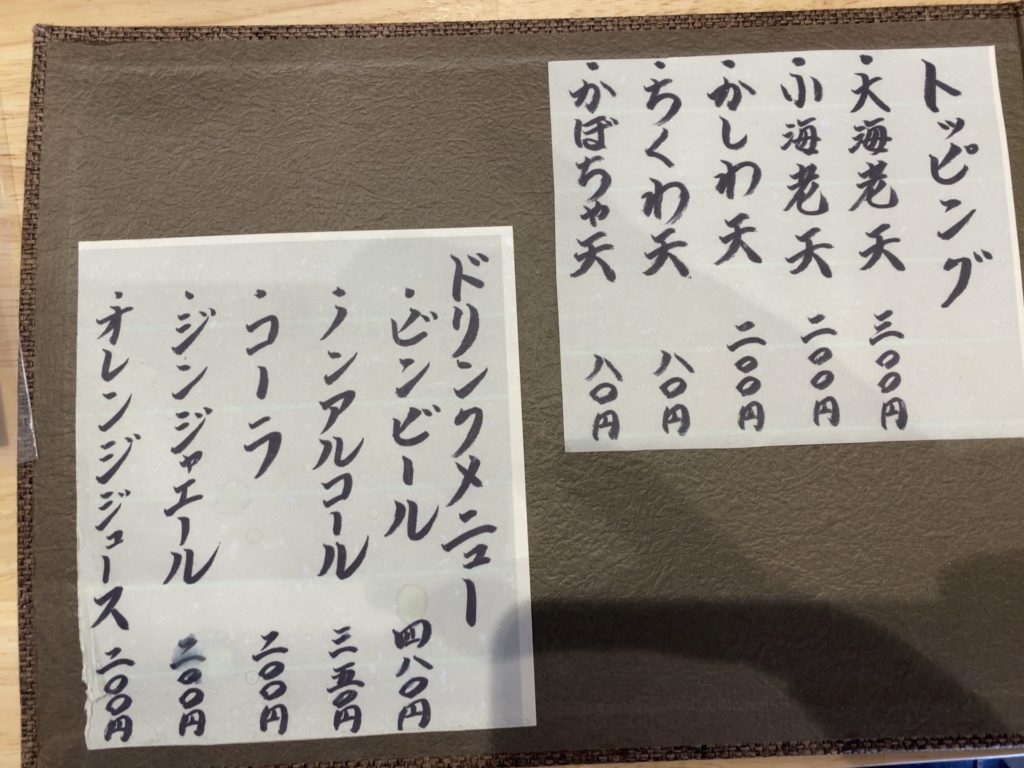 トッピング
・大海老天 三〇〇円
・小海老天 二〇〇円
・かしわ天 二〇〇円
・ちくわ天 八〇円
・かぼちゃ天 八〇円
ドリンクメニュー
・ビンビール 四八〇円
・ノンアルコール 三五〇円
・コーラ 二〇〇円
・ジンジャエール 二〇〇円
・オレンジジュース 二〇〇円